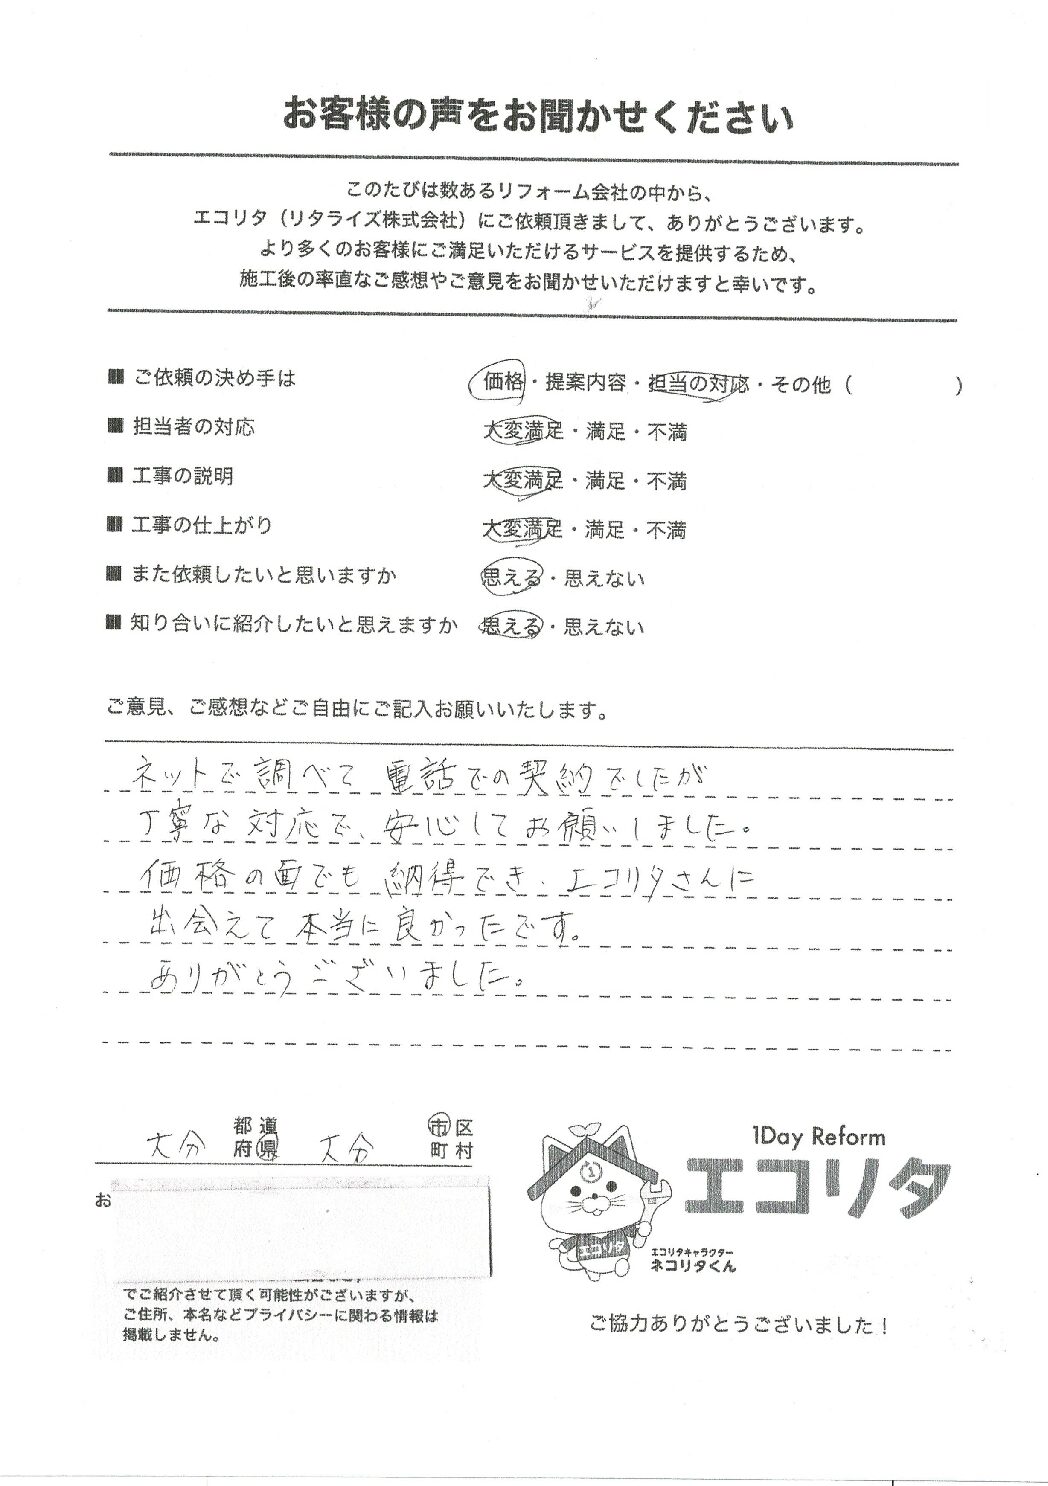 お客様の声をお聞かせください
このたびは数あるリフォーム会社の中から、
エコリタ（リタライズ株式会社）にご依頼頂きまして、ありがとうございます。
より多くのお客様にご満足いただけるサービスを提供するため、
施工後の率直なご感想やご意見をお聞かせいただけますと幸いです。
■ ご依頼の決め手は 価格・提案内容・担当の対応・その他（ ）
■ 担当者の対応 大変満足・満足・不満
■ 工事の説明 大変満足・満足・不満
■ 工事の仕上がり 大変満足・満足・不満
■ また依頼したいと思いますか 思える・思えない
■ 知り合いに紹介したいと思えますか 思える・思えない
ご意見、ご感想などご自由にご記入お願いいたします。
ネットで調べて電話での契約でしたが
丁寧な対応で、安心してお願いしました。
価格の面でも納得でき、エコリタさんに
出会えて本当に良かったです。
ありがとうございました。
大分 都道府県 大分 市区町村
お
でご紹介させて頂く可能性がございますが、
ご住所、本名などプライバシーに関わる情報は
掲載しません。
1Day Reform
エコリタ
エコリタ
エコリタキャラクター
ネコリタくん
ご協力ありがとうございました！